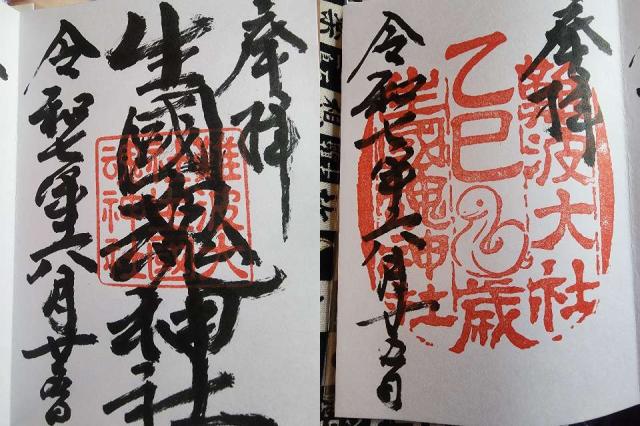 奉拝
生國魂神社
難波大
社生國
魂神社
令和七年八月廿五日
奉拝
難波大社
乙巳歳
生國魂神社
令和七年八月廿五日